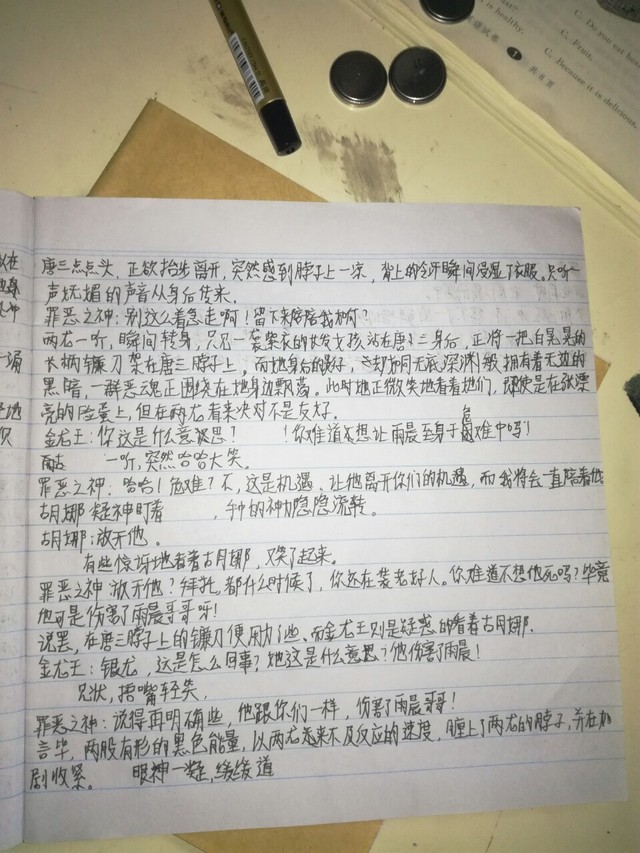 C. Do you eat
is healthy.
C. Fruit.
C. Because it is delicious.
唐三点点头，正欲抬步离开，突然感到脖子上一凉，背上的冷汗瞬间浸湿了衣服。只听一
声妩媚的声音从身后传来。
罪恶之神：别这么着急走啊！留下来陪陪我如何？
两龙一听，瞬间转身，只见一袭紫衣的女孩站在唐三身后，正将一把白晃晃的
长柄镰刀架在唐三脖子上，而她身后的影子，却如同无底深渊一般，拥有着无边的
黑暗，一群恶魂正围绕在她身边飘荡。此时她正微笑地看着她们，即使是在张漂
亮的脸蛋上，但在两龙看来决对不是友好。
金龙王：你这是什么意思？ ！你难道不想让雨晨至身于危难中吗！
一听，突然哈哈大笑。
罪恶之神：哈哈！危难？不，这是机遇、让他离开你们的机遇，而我将会一直陪着他
古月娜凝神盯着 ，手中的神力隐隐流转。
古月娜：放开他。
有些惊讶地看着古月娜，又笑了起来。
罪恶之神：放开他？拜托，都什么时候了，你还在装老好人。你难道不想他死吗？毕竟
他可是伤害了雨晨哥哥呀！
说罢，在唐三脖子上的镰刀便用力了些、而金龙王则是疑惑的看着古月娜。
金龙王：银龙，这是怎么回事？她这是什么意思？他伤害了雨晨！
见状，捂嘴轻笑，
罪恶之神：该得再明确些，他跟你们一样，伤害了雨晨哥哥！
言毕，两股有形的黑色能量，以两龙都来不及反应的速度，缠上了两龙的脖子，并在加
剧收紧。 眼神一凝，缓缓道